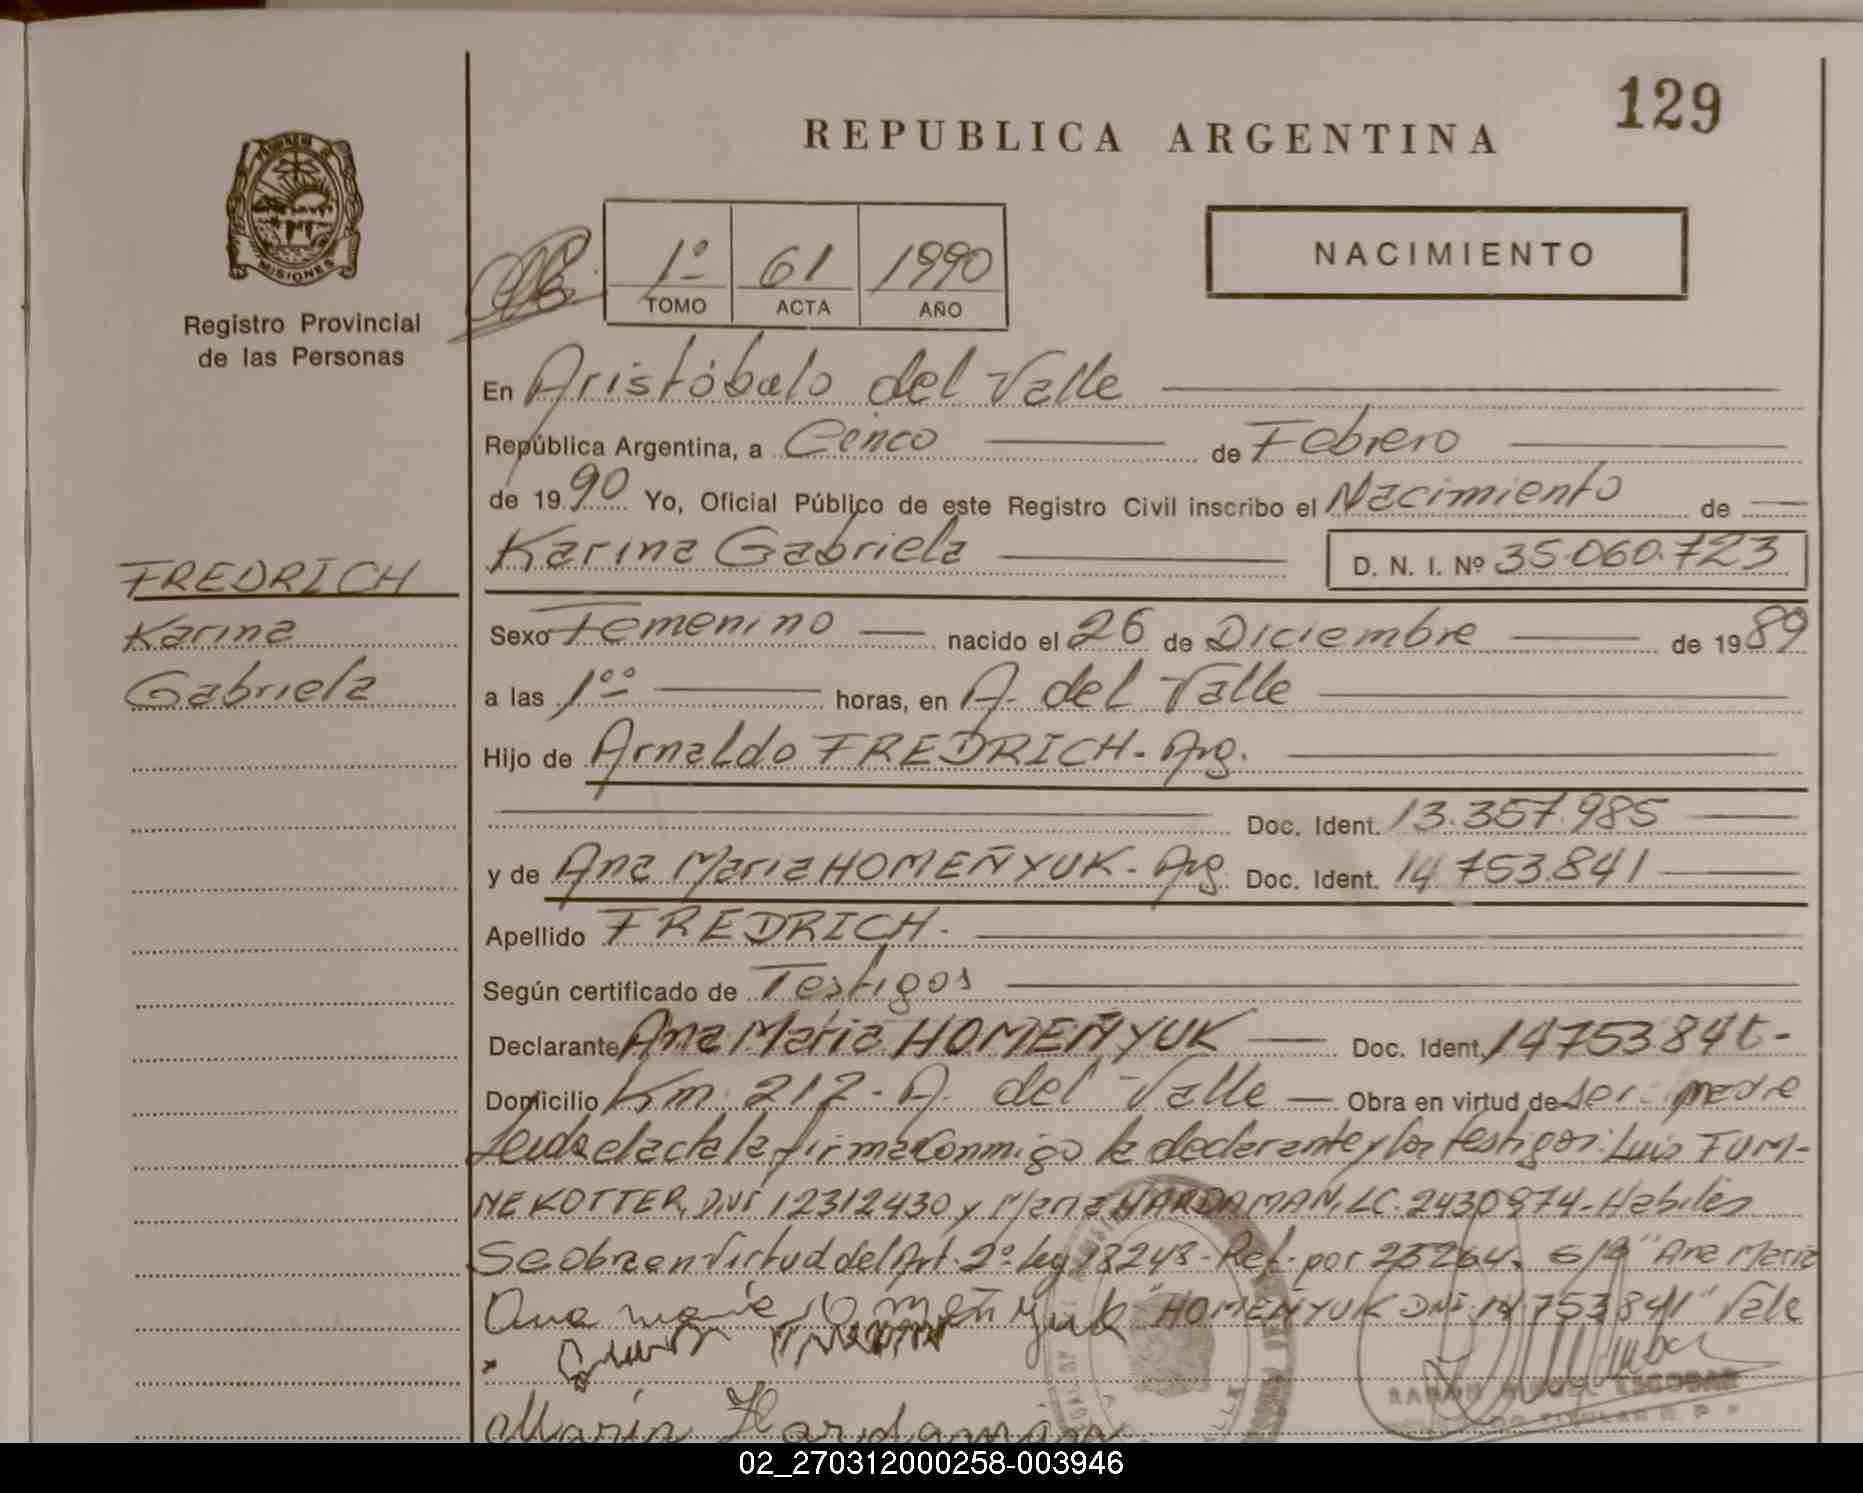 129
REPUBLICA ARGENTINA
MISIONES
Registro Provincial
de las Personas
1º 61 1990
TOMO ACTA AÑO
NACIMIENTO
En Aristóbulo del Valle
República Argentina, a Cinco de Febrero
de 1990 Yo, Oficial Público de este Registro Civil inscribo el Nacimiento de
Karina Gabriela D. N. I. Nº 35.060.723
FREDRICH
Karina
Gabriela
Sexo Femenino nacido el 26 de Diciembre de 1989
a las 1ºº horas, en A. del Valle
Hijo de Arnaldo FREDRICH - Arg.
Doc. Ident. 13.357.985
y de Ana Maria HOMEÑYUK - Arg Doc. Ident. 14.753.841
Apellido FREDRICH.
Según certificado de Testigos
Declarante Ana Maria HOMEÑYUK Doc. Ident. 1475384
Domicilio Km. 212 - A. del Valle Obra en virtud de ser madre
Leida el acta la firma conmigo la declarante y los testigos: Luis TUM-
NEKOTTER, DNI 12312430 y Maria HARDAMAN, LC. 2430974 - Habiles
Se obra en virtud del Art. 2º Ley 18248 - Ref. por 23264. S/R "Ana Maria
HOMEÑYUK DNI: 14.753841" Vale
Ana maria Homeñyuk
Maria Hardaman
02_270312000258-003946